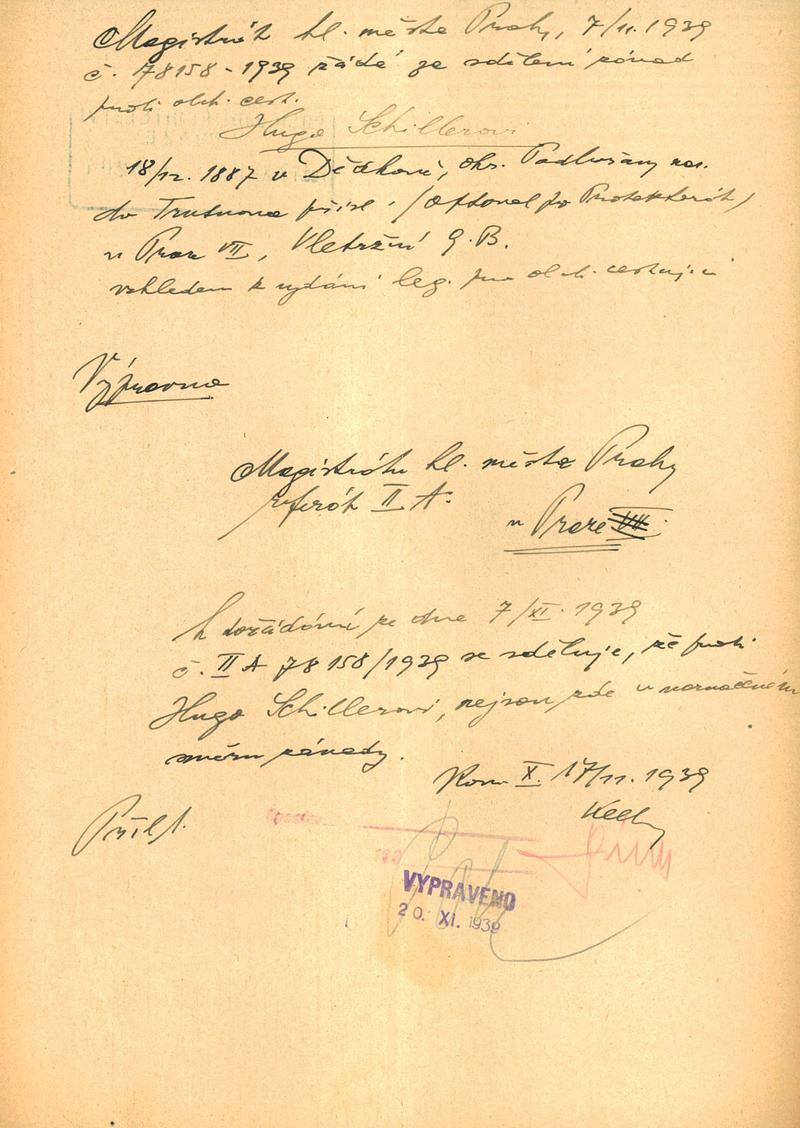 Magistrát hl. města Prahy, 7/11. 1939
č. 78158-1939 žádá za sdělení závad
proti obch. cest.
Hugo Schillerovi
18/12. 1887 v Děčkově, okr. Podbořany nar.
do Trutnova přísl. (optoval pro Protektorát)
v Praze VII, Veletržní 9.B.
vzhledem k vydání leg. pro obch. cestující
Výpravna
Magistrátu hl. města Prahy
referát II A.
v Praze
K dožádání ze dne 7/XI. 1939
č. II A 78158/1939 se sděluje, že proti
Hugo Schillerovi, nejsou zde v naznačeném
směru závady.
Kom X. 17/11. 1939
Příl 1.
193
VYPRAVENO
20. XI. 1939